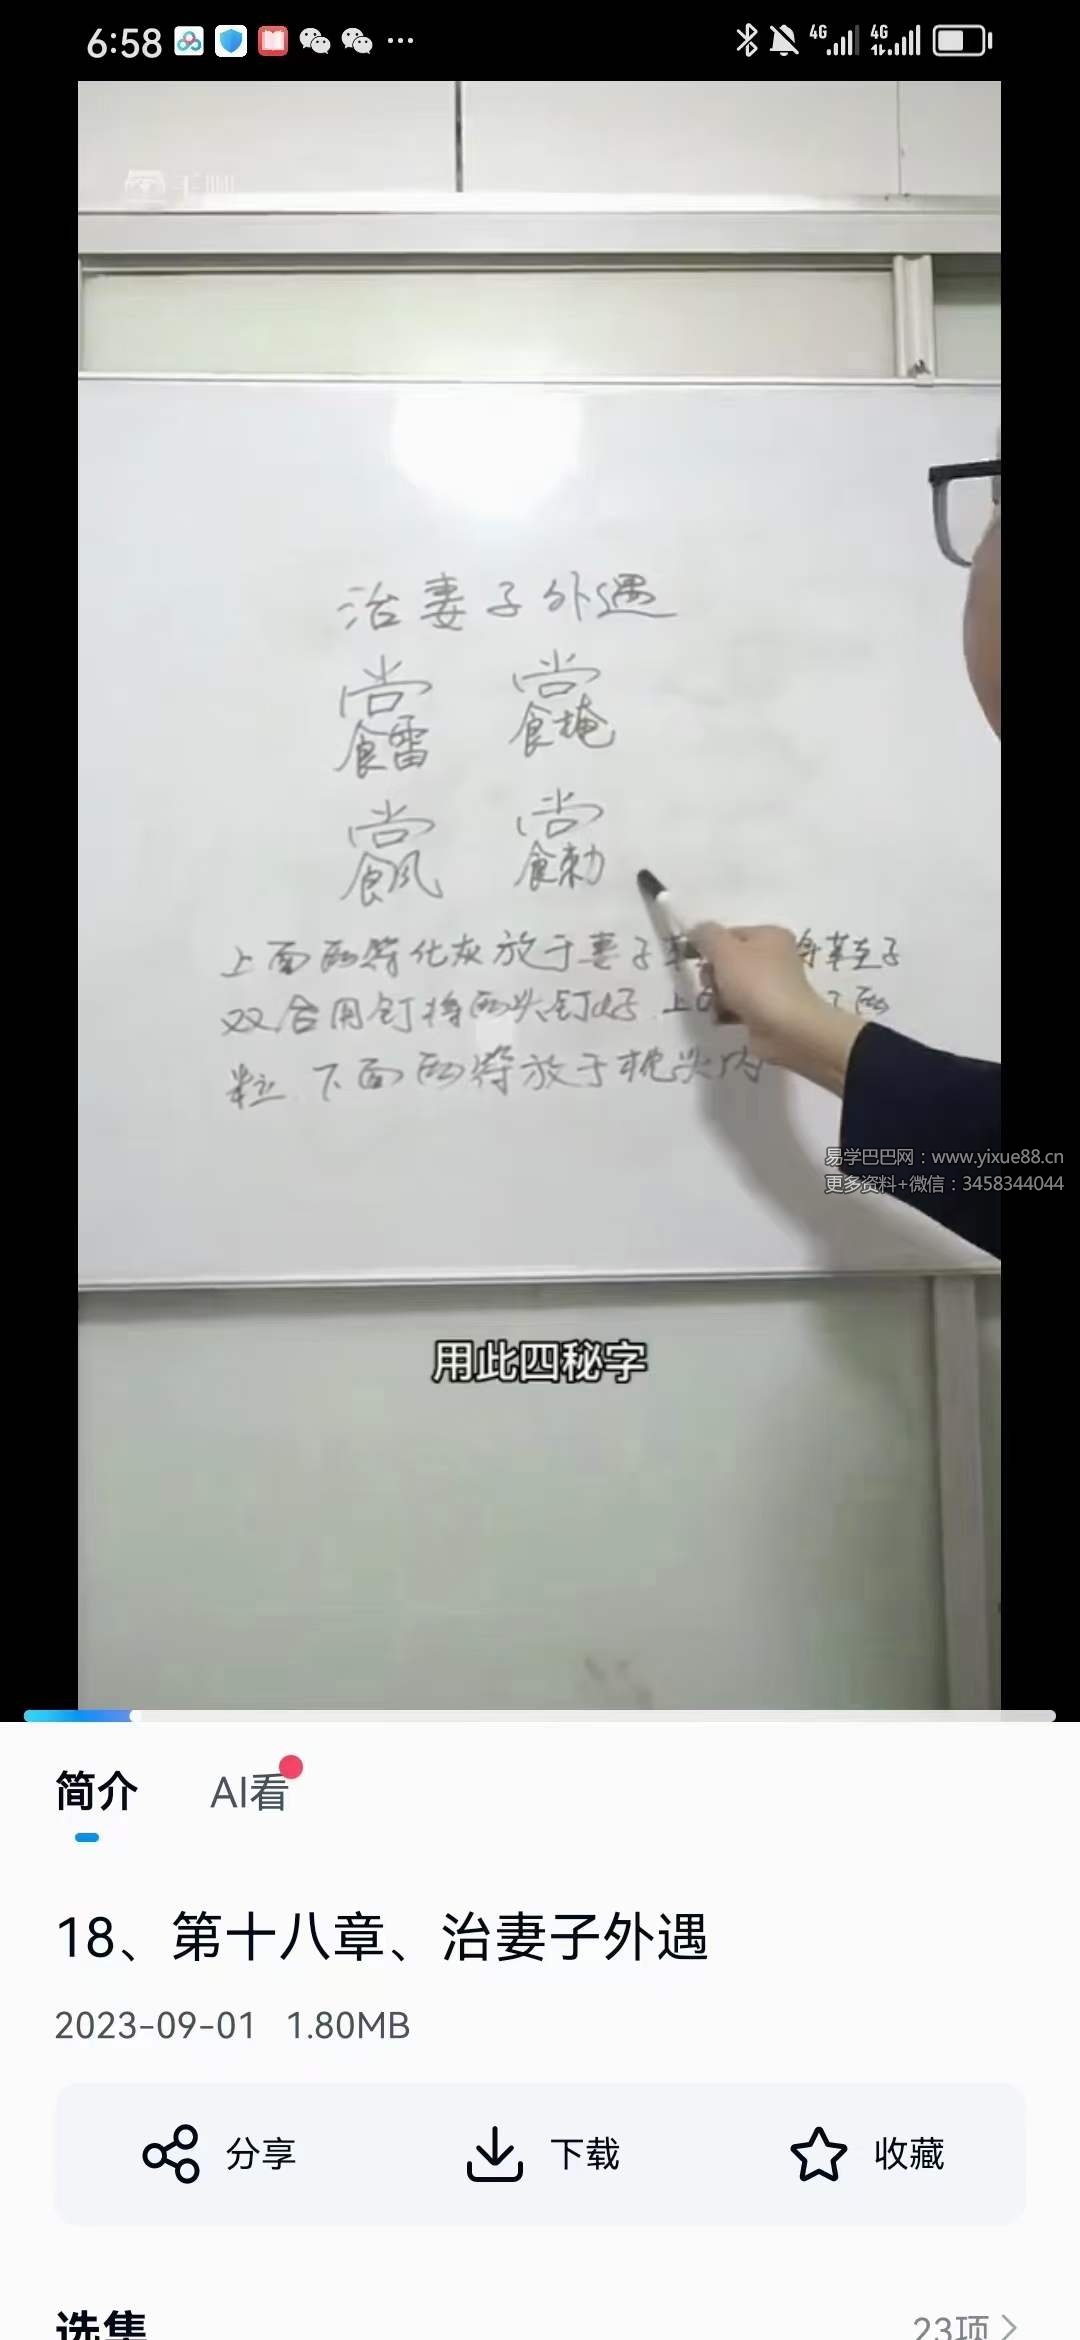 6:58
4G 4G
治妻子外遇
上面两符化灰放于妻子
鞋子
双合用钉将两头钉好.上
两
粒.下面两符放于枕头内
易学巴巴网:www.yixue88.cn
更多资料+微信:3458344044
用此四秘字
简介 AI看
18、第十八章、治妻子外遇
2023-09-01 1.80MB
分享 下载 收藏
选集 23项